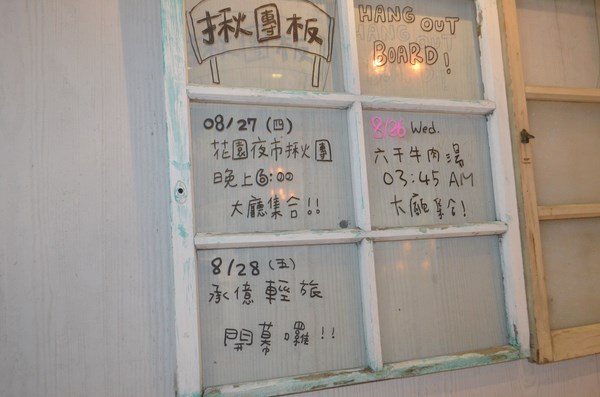 揪團板
HANG OUT
BOARD!
08/27 (四)
花園夜市揪火團
晚上6:00
大廳集合!!
8/26 Wed.
六千牛肉湯
03:45 AM
大廳集合!
8/28 (五)
承億輕旅
開幕囉!!